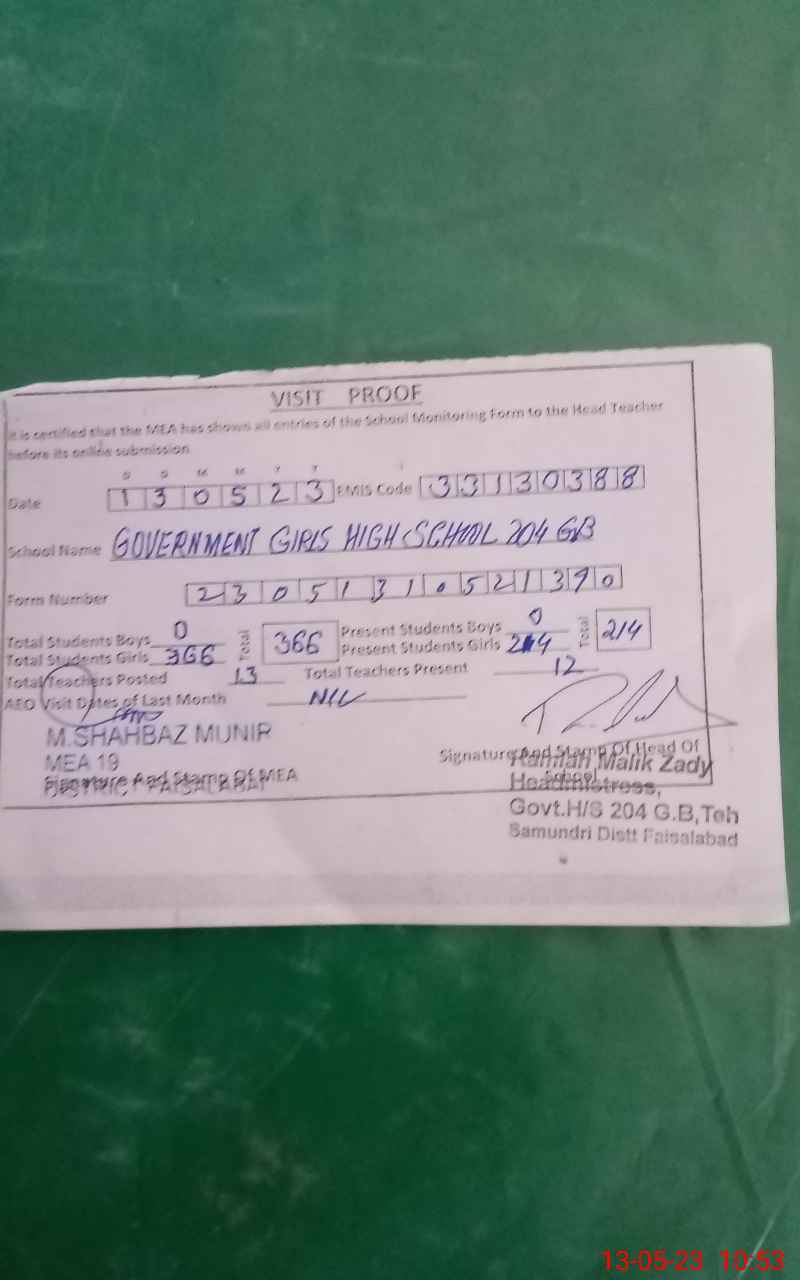 VISIT PROOF
It is certified that the MEA has shown all entries of the School Monitoring Form to the Head Teacher
before its online submission
D D M M Y Y
Date 130523 EMIS Code 33130388
School Name GOVERNMENT GIRLS HIGH SCHOOL 204 GB
Form Number 23051310521390
Total Students Boys 0 Total 366 Present Students Boys 0 Total 214
Total Students Girls 366 Present Students Girls 214
Total Teachers Posted 13 Total Teachers Present 12
AEO Visit Dates of Last Month NIL
M.SHAHBAZ MUNIR
MEA 19
Signature And Stamp Of MEA
DISTRICT FAISALABAD
Signature And Stamp Of Head Of
School
Malik Zady
Headmistress,
Govt.H/S 204 G.B,Teh
Samundri Distt Faisalabad
13-05-23 10:53